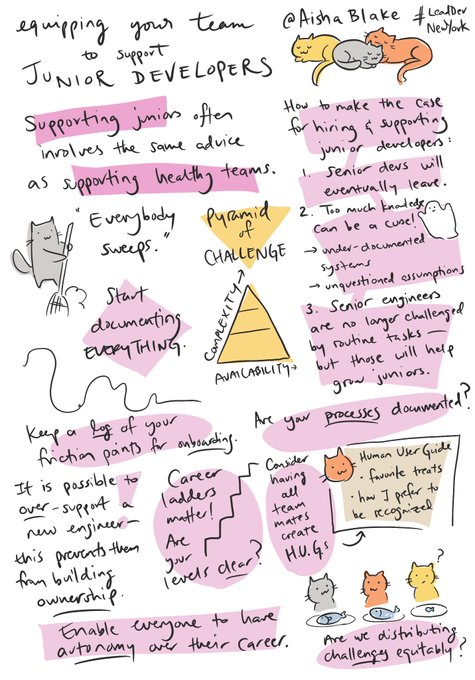 equipping your team
to support
JUNIOR DEVELOPERS
@Aisha Blake
#LeadDev
NewYork
Supporting juniors often
involves the same advice
as supporting healthy teams.
"Everybody
sweeps."
Pyramid
of
CHALLENGE
COMPLEXITY →
AVAILABILITY →
Start
documenting
EVERYTHING.
How to make the case
for hiring & supporting
junior developers:
1. Senior devs will
eventually leave.
2. Too much knowledge
can be a curse!
→ under-documented
systems
→ unquestioned assumptions
3. Senior engineers
are no longer challenged
by routine tasks —
but those will help
grow juniors.
Keep a log of your
friction points for onboarding.
Are your processes documented?
It is possible to
over-support a
new engineer —
this prevents them
from building
ownership.
Career
ladders
matter!
Are
your
levels clear?
Consider
having
all
team
mates
create
H.U.Gs
Human User Guide
• favorite treats
• how I prefer to
be recognized
Enable everyone to have
autonomy over their career.
?
Are we distributing
challenges equitably?